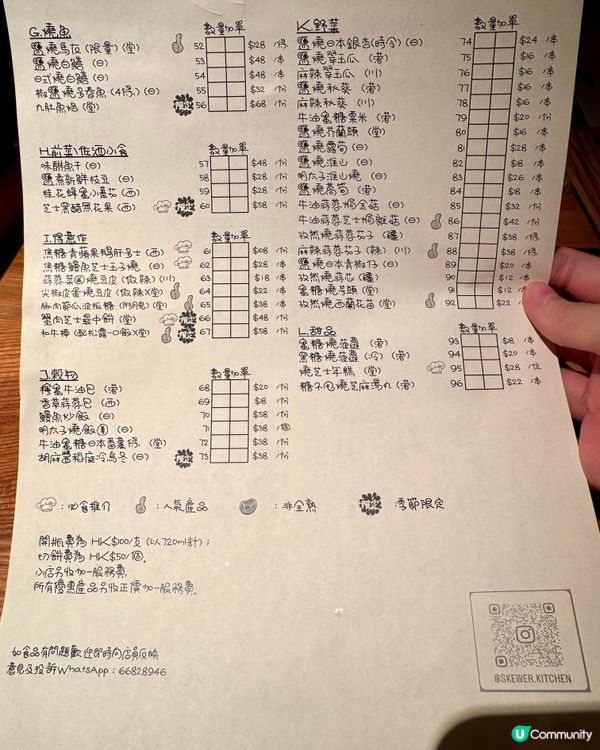 G.燒魚
數量 加單
鹽燒馬友(限量)(堂) 52 $128 /條
鹽燒白鱔 (日) 53 $48 /串
日式燒白鱔 (日) 54 $48 /串
椒鹽燒多春魚(4條)(日) 55 $32 /份
九肚魚焙 (堂) 56 $68 /份
H.前菜/佐酒小食
數量 加單
味醂魚干 (日) 57 $48 /份
鹽煮新鮮枝豆 (日) 58 $28 /份
桂花蜂蜜小蕃茄 (西) 59 $28 /份
芝士黑醋無花果 (西) 60 $58 /份
I.得意作
數量 加單
焦糖青蘋果鵝肝多士 (西) 61 /份
焦糖鰻魚芝士玉子燒 (日) 62 $28 /份
蒜蓉菜圃燒豆皮 (微辣)(川) 63 $18 /串
尖椒皮蛋燒豆皮 (微辣)(堂) 64 $22 /串
65 $38 /份
蟹肉芝士最中餅 (堂) 66 $48 /份
和牛棒 (配松露一口飯)(堂) 67 $58 /份
J.穀物
數量 加單
檸蜜牛油包 (港) 68 $20 /份
香草蒜蓉包 (西) 69 $18 /份
鰻魚炒飯 (日) 70 $58 /份
明太子燒飯團 (日) 71 $38 /個
牛油蜜糖日本番薯條 (堂) 72 $38 /份
胡麻醬稻庭冷烏冬 (日) 73 $38 /份
K.野菜
數量 加單
鹽燒日本銀杏(時令) (日) 74 $24 /串
鹽燒翠玉瓜 (港) 75 $16 /串
麻辣翠玉瓜 (川) 76 $16 /串
鹽燒秋葵 (港) 77 $16 /串
麻辣秋葵 (川) 78 $16 /串
牛油蜜糖粟米 (港) 79 $20 /份
鹽燒芥蘭頭 (堂) 80 $16 /串
鹽燒露荀 (日) 81 $28 /串
鹽燒淮山 (日) 82 $18 /串
明太子淮山燒 (日) 83 $26 /串
鹽燒萵荀 (港) 84 $18 /串
牛油蒜蓉焗金菇 (日) 85 $32 /份
牛油蒜蓉芝士焗雜菇 (日) 86 $42 /份
孜然蒜蓉茄子 (疆) 87 $38 /條
麻辣蒜蓉茄子 (辣) (川) 88 $38 /條
鹽燒日本青椒仔 (日) 89 $20 /串
孜然燒蒜芯 (疆) 90 $12 /串
蜜糖燒芋頭 (堂) 91 $12 /串
孜然燒西蘭花苗 (堂) 92 $22
L.甜品
數量 加單
蜜糖燒菠蘿 (港) 93 $18 /串
黑糖燒菠蘿 (冷) (港) 94 $20 /串
燒芝士年糕 (堂) 95 $28 /位
糖不甩燒芝麻湯丸 (港) 96 $22 /串
:必食推介 :人氣產品 :非全熟 :季節限定
開瓶費為 HK$100/支 (以720ml計);
切餅費為 HK$50/個.
小店另收加一服務費.
所有優惠產品另收正價加一服務費.
如食品有問題歡迎即時向店員反映
意見及投訴WhatsApp : 66828946
@SKEWER.KITCHEN
U Community